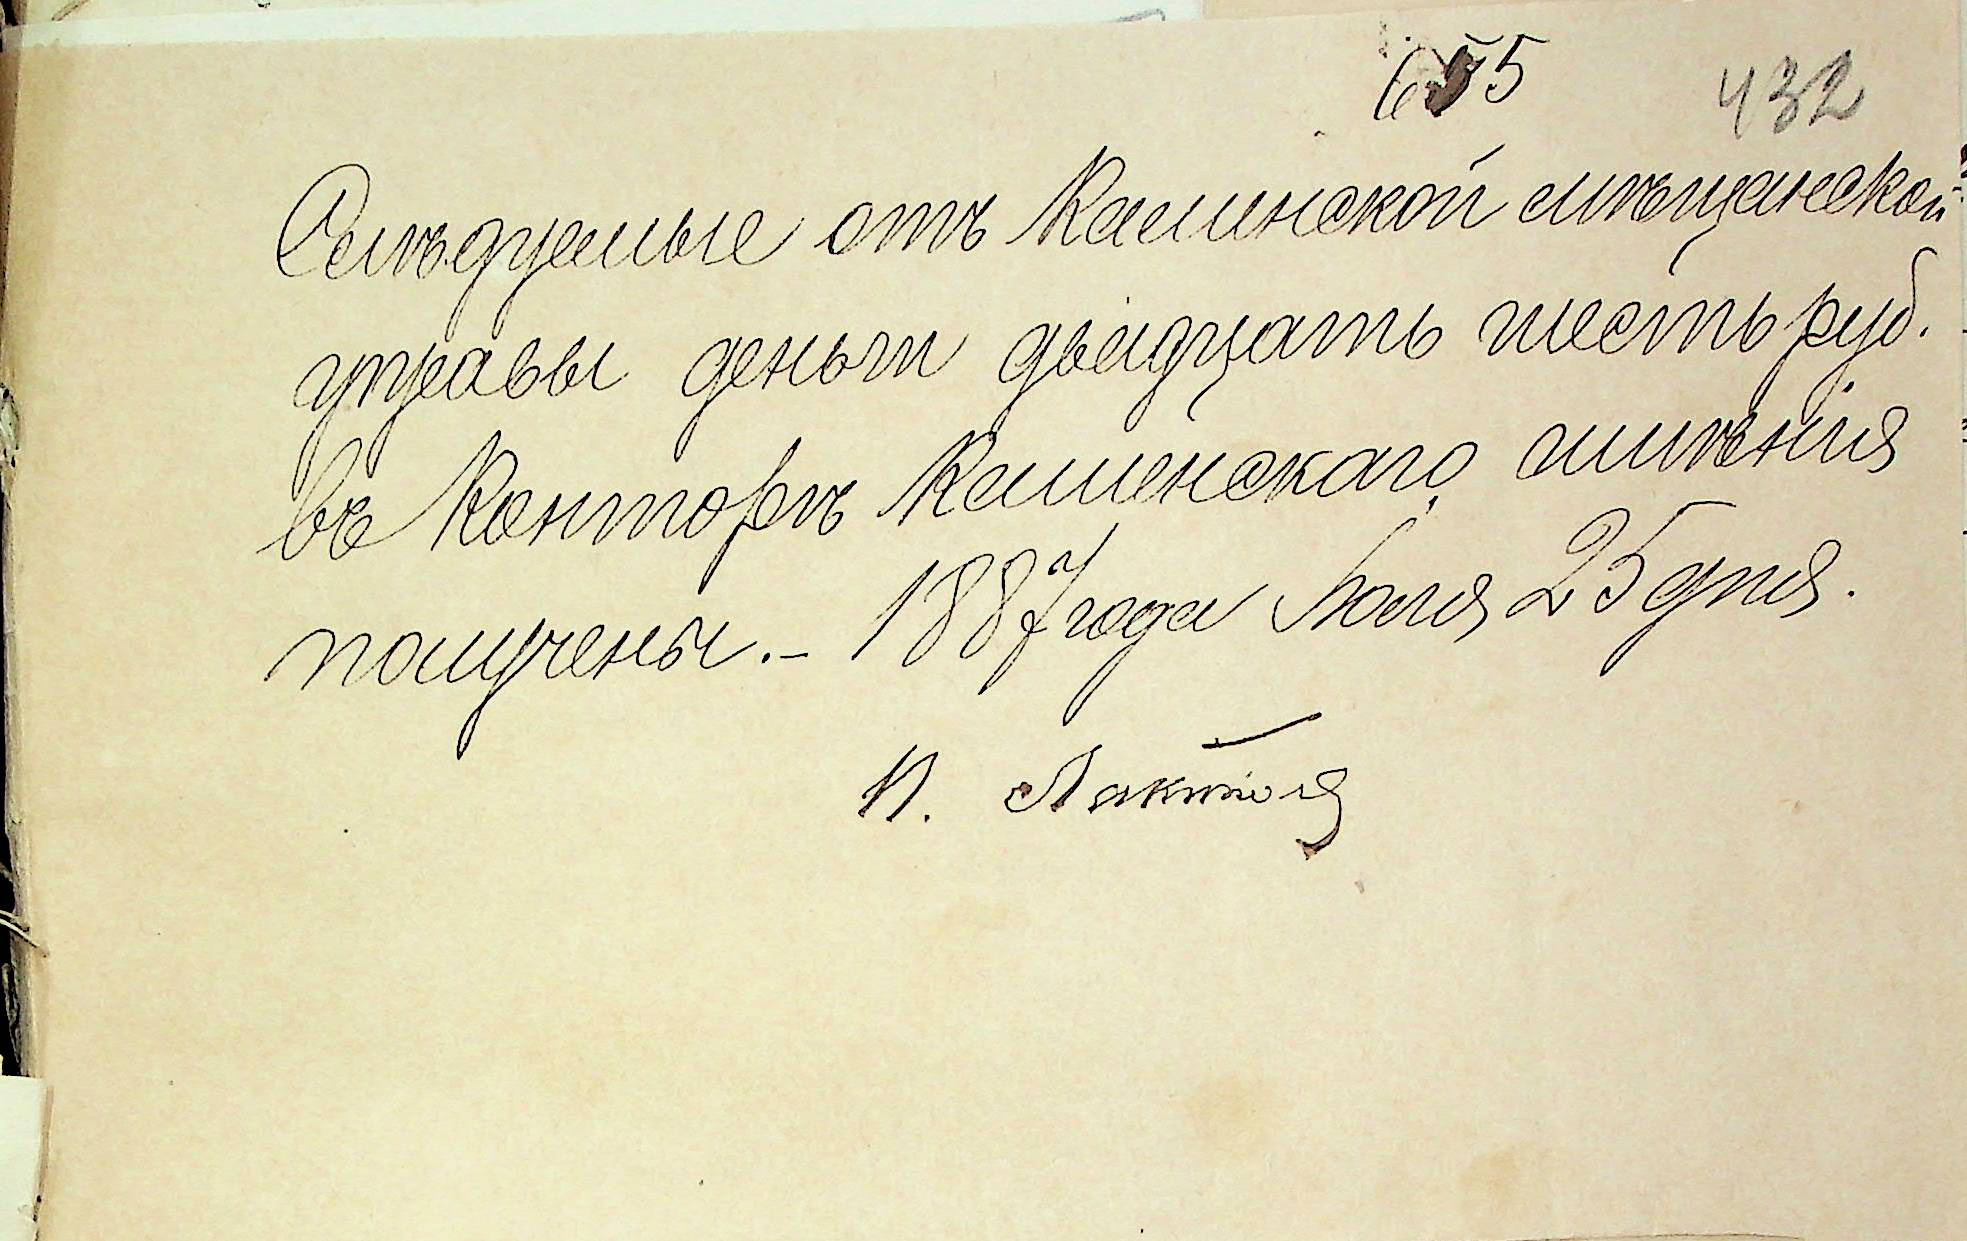 655 432
Слѣдуемые отъ Каменской мѣщанской
управы деньги двадцать шесть руб.
въ Конторѣ Каменскаго имѣнія
получены. – 1887 года Июля 25 дня.